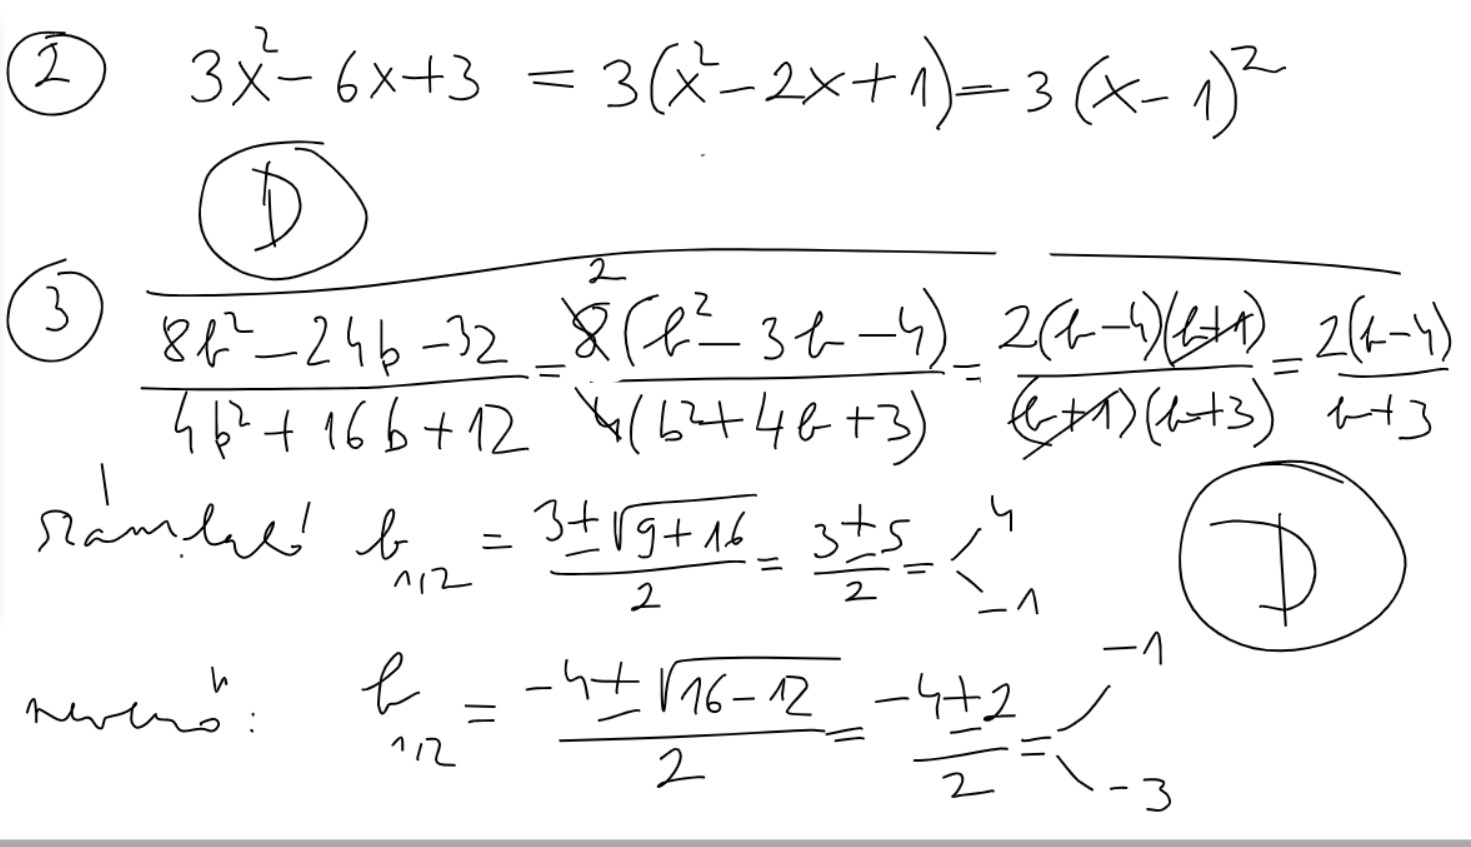 ② 3x² - 6x + 3 = 3(x² - 2x + 1) = 3(x - 1)²
D
③ (8b² - 24b - 32)/(4b² + 16b + 12) = 8(b² - 3b - 4)/4(b² + 4b + 3) 2 = 2(b - 4)(b + 1)/(b + 1)(b + 3) = 2(b - 4)/(b + 3)
számláló b₁,₂ = (3 ± √(9 + 16))/2 = (3 ± 5)/2 = 4 -1
D
nevező: b₁,₂ = (-4 ± √(16 - 12))/2 = (-4 ± 2)/2 = -1 -3